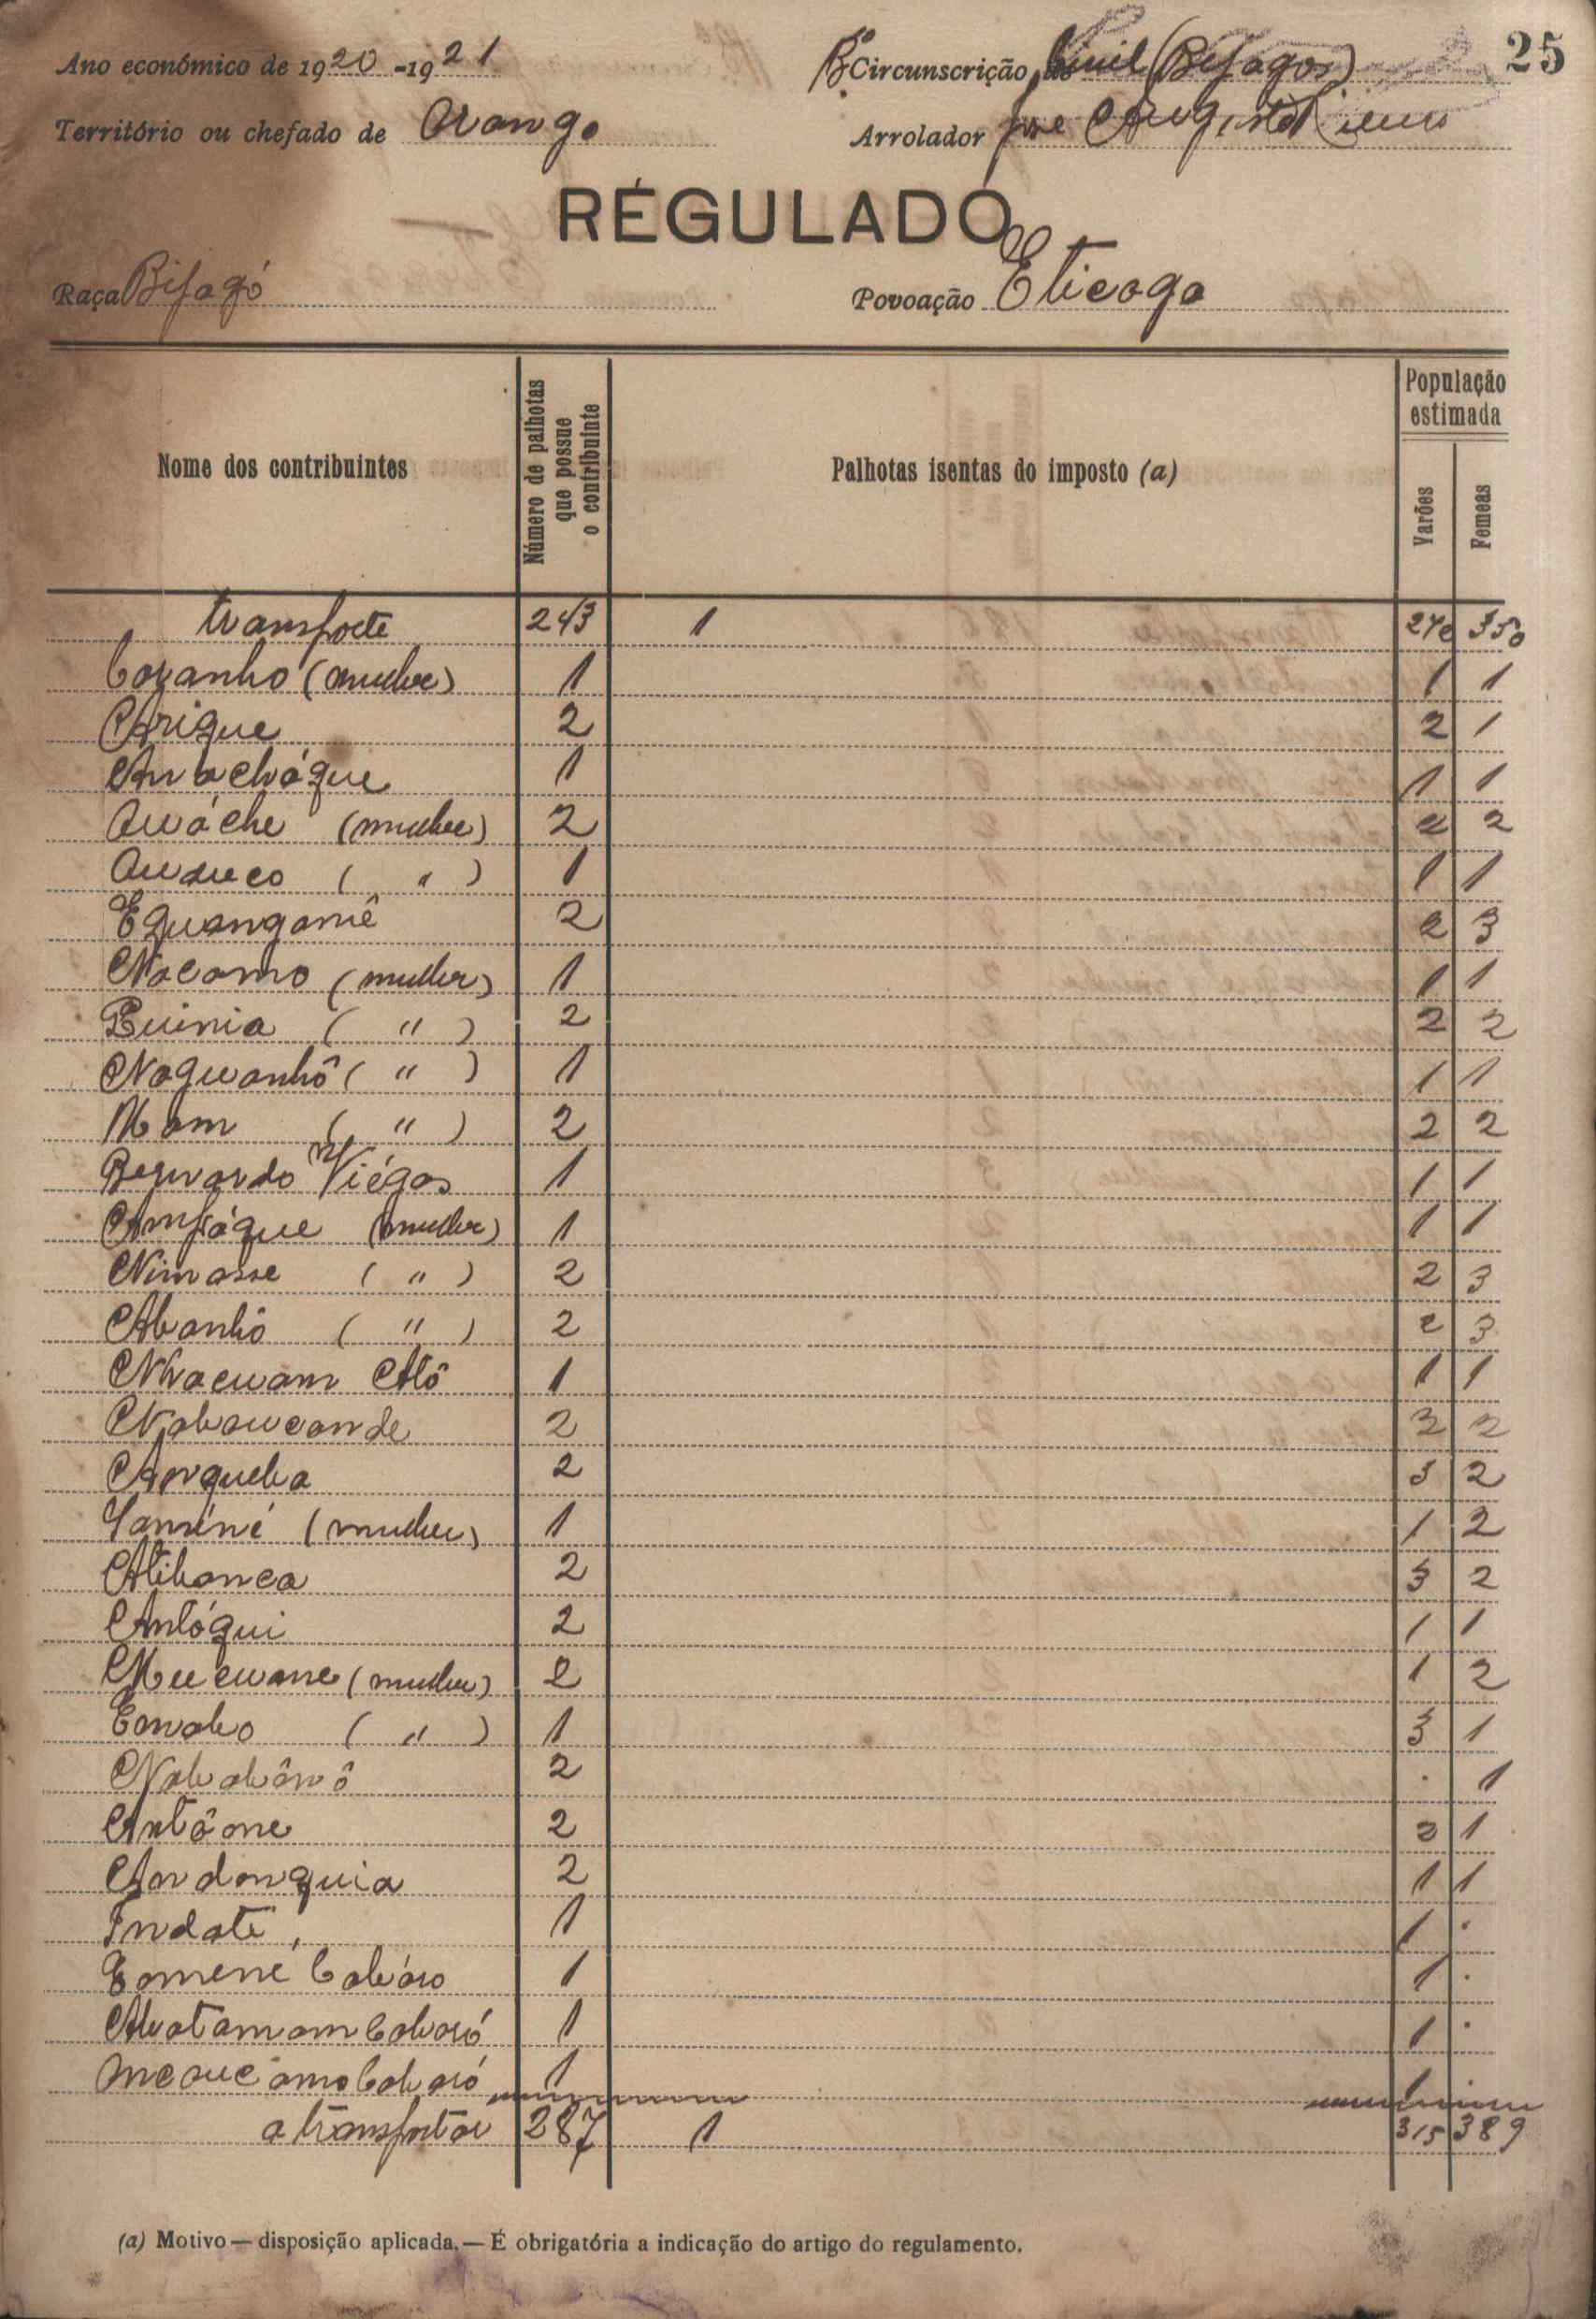 25
Ano económico de 1920-1921
Circunscrição Civil (Bijagos)
Território ou chefado de Orango
Arrolador José Augusto
RÉGULADO
Raça Bijagó
Povoação Eticoga
Nome dos contribuintes
Número de palhotas que possue o contribuinte
Palhotas isentas do imposto (a)
População estimada
Varões
Femeas
transporte 243 1 270 350
Cozanho (mulher) 1 1 1
Arique 2 2 1
Anbacháque 1 1 1
Auáche (mulher) 2 2 2
Auduco ( " ) 1 1 1
Eguangamê 2 2 3
Nacomo (mulher) 1 1 1
Puinia ( " ) 2 2 2
Naguanhô ( " ) 1 1 1
Mam ( " ) 2 2 2
Bernardo Viégas 1 1 1
Amfáque (mulher) 1 1 1
Nimasse ( " ) 2 2 3
Abanhô ( " ) 2 2 3
Nhacuam Alô 1 1 1
Nabaucande 2 3 2
Anqueba 2 3 2
Saméné (mulher) 1 1 2
Atibanca 2 3 2
Antóqui 2 1 1
Mucuane (mulher) 2 1 2
Ennabo ( " ) 1 3 1
Nababônô 2 . 1
Antône 2 2 1
Andonquia 2 1 1
Indate 1 1 .
Eomené Cabáro 1 1 .
Abatamam Cabaró 1 1 .
Cabaró 1 1 .
a transportar 287 1 315 389
(a) Motivo — disposição aplicada. — É obrigatória a indicação do artigo do regulamento.